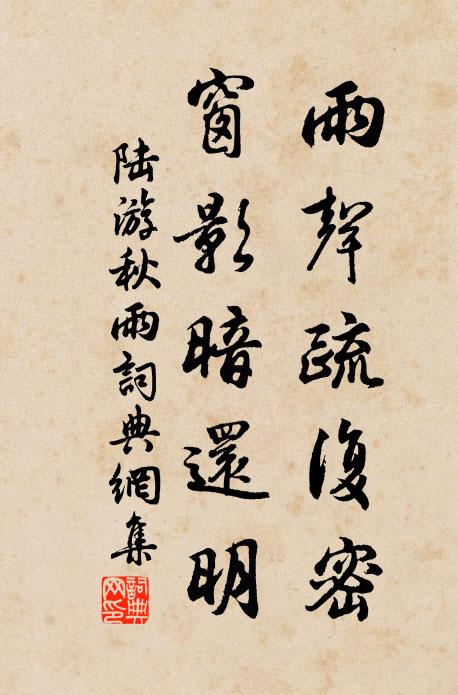 雨聲疏復密
窗影暗還明
陸游秋雨詞典網集
詞典網印